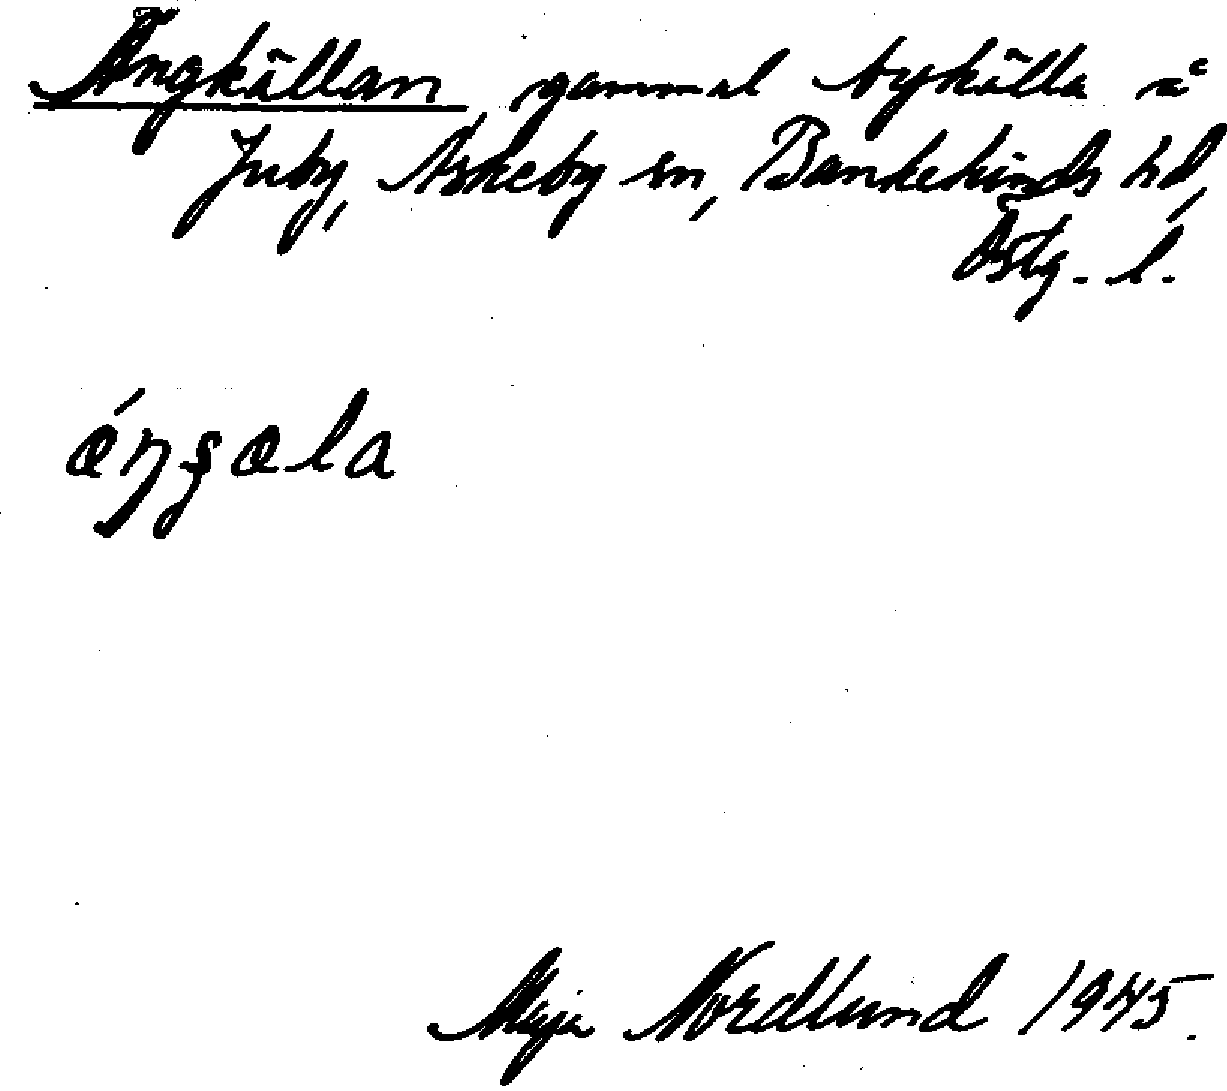 Ängkällan gammal bykälla i
Juby, Askeby sn, Bankekinds hd,
Östg. l.
ǽŋʂæla
Maja Nordlund 1945.